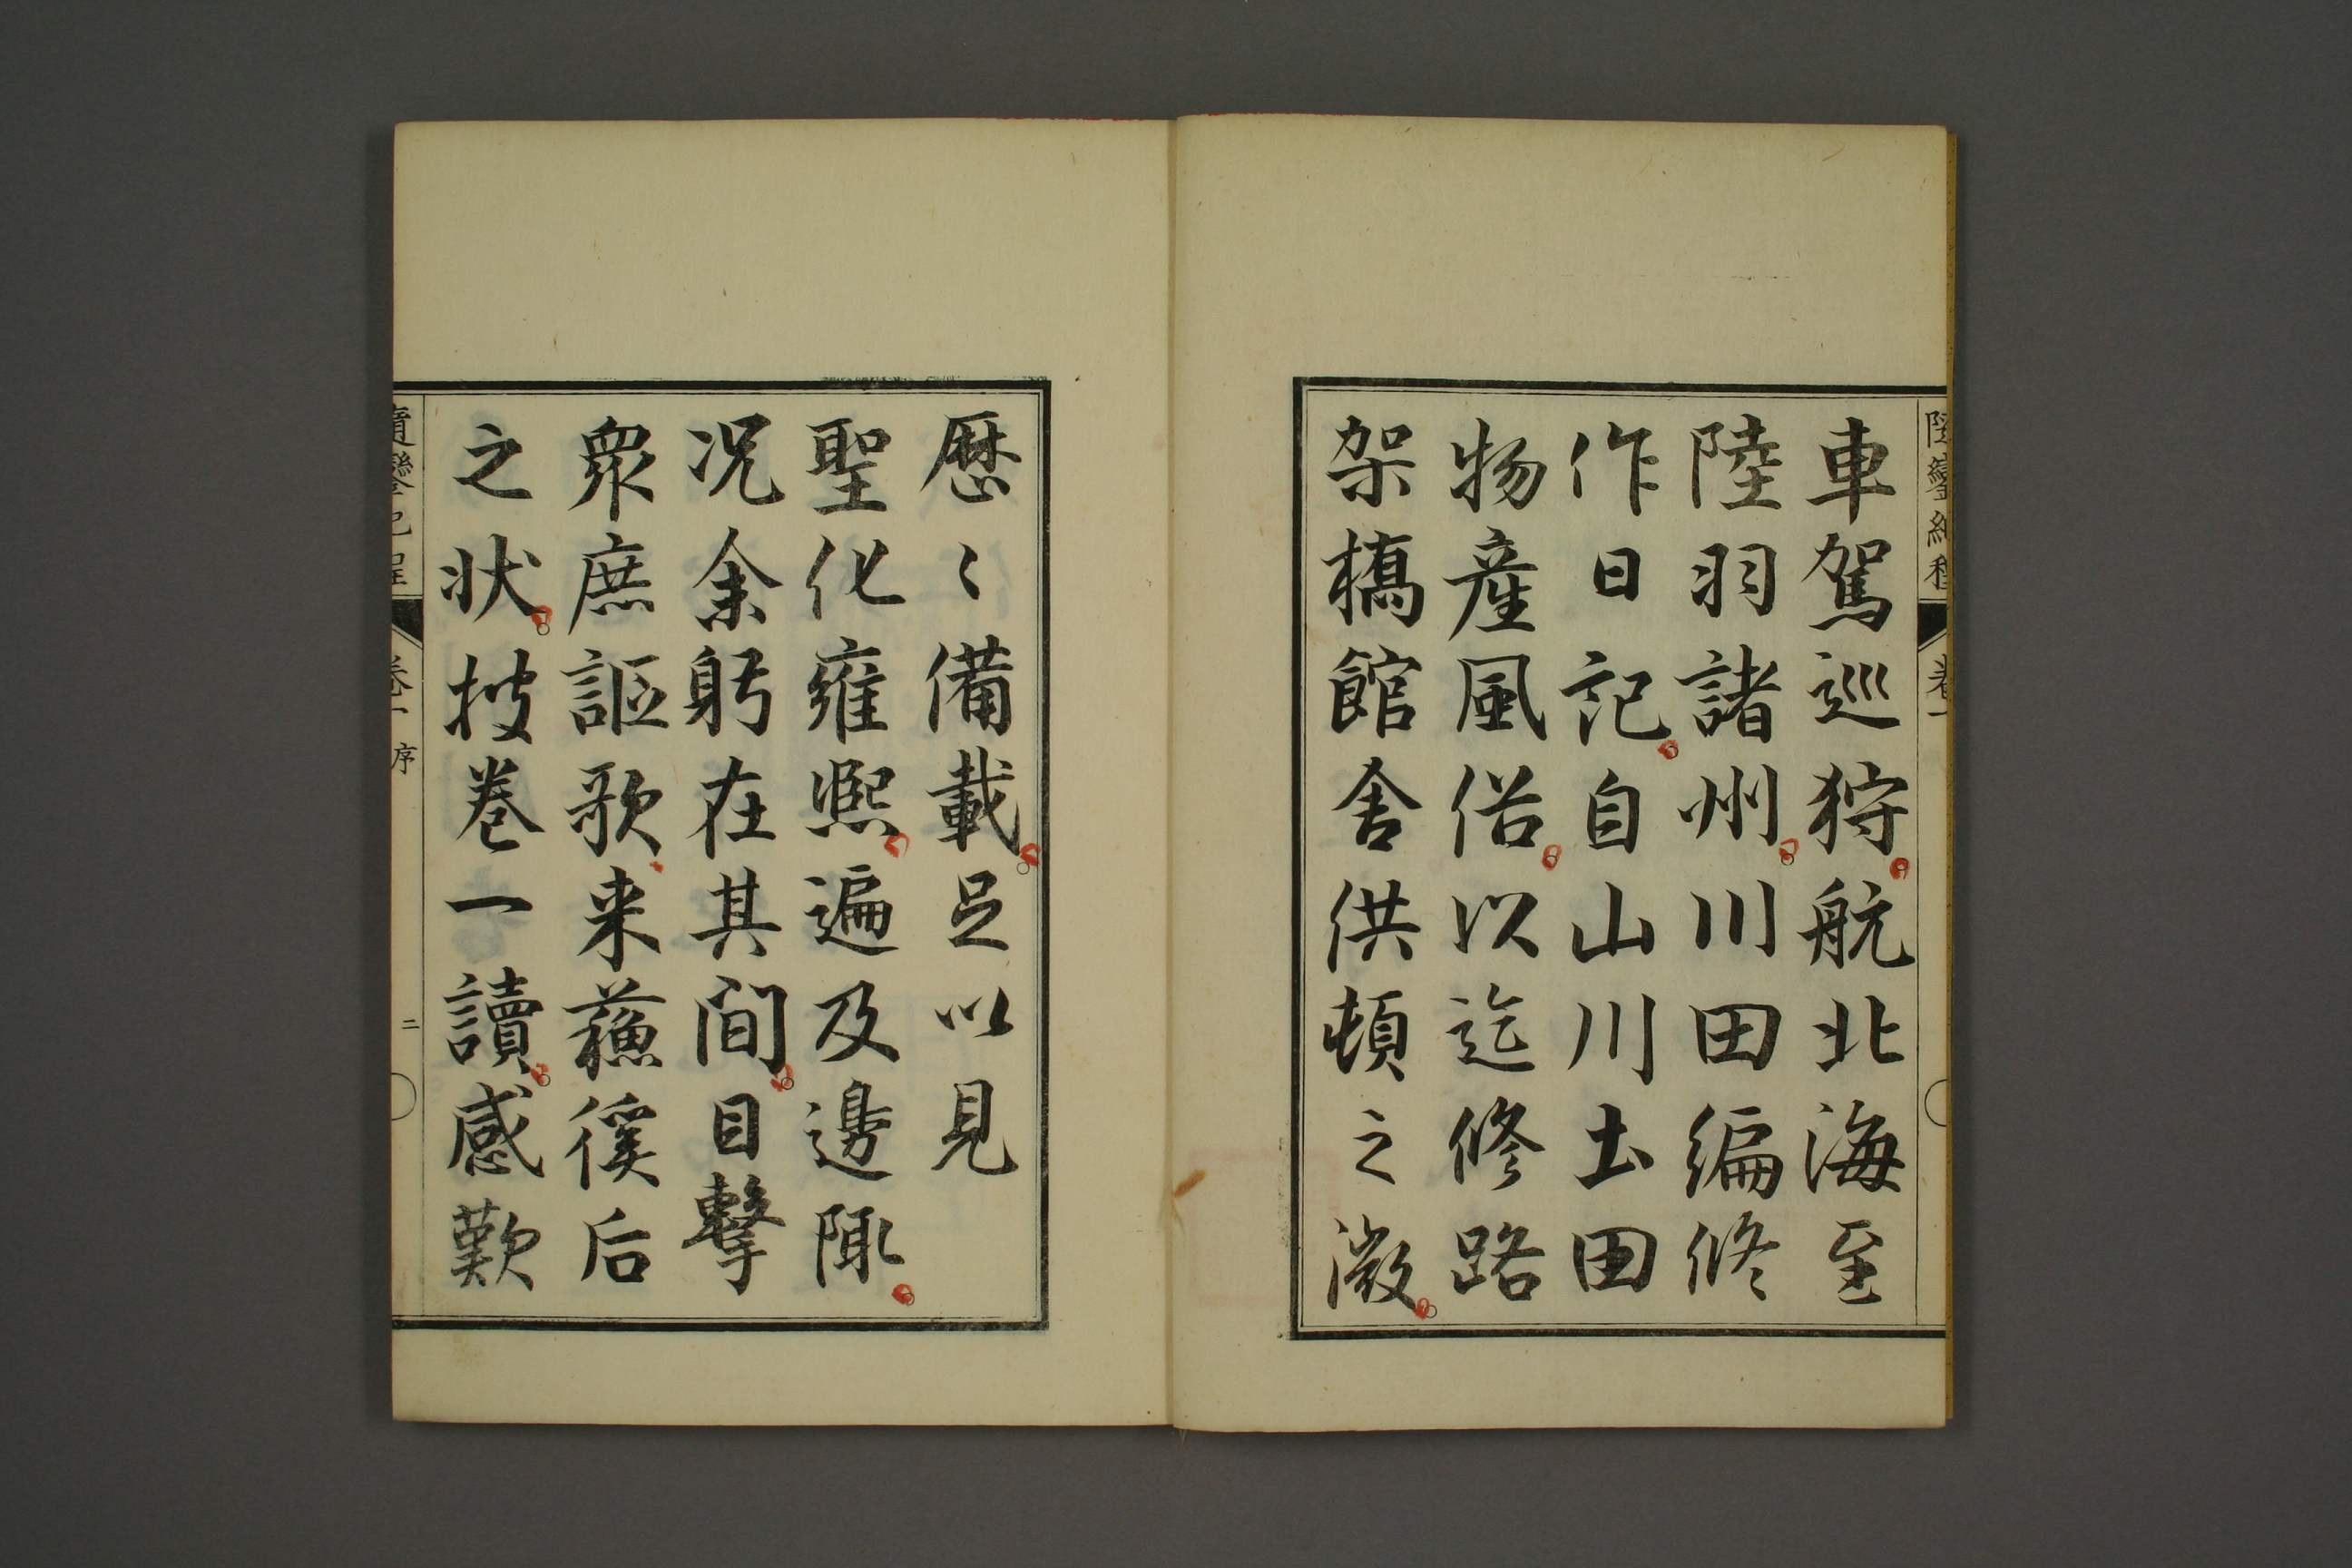 車駕巡狩。航北海至
陸羽諸州。川田編修
作日記。自山川土田
物産風俗。以迄修路
架橋館舍供頓之微。
歴〻備載。足以見
聖化雍熙。遍及邊陬。
況余躬在其間。目擊
衆庶謳歌来蘓徯后
之状。披巻一讀。感歎
隨鑾紀程
巻一
序
二